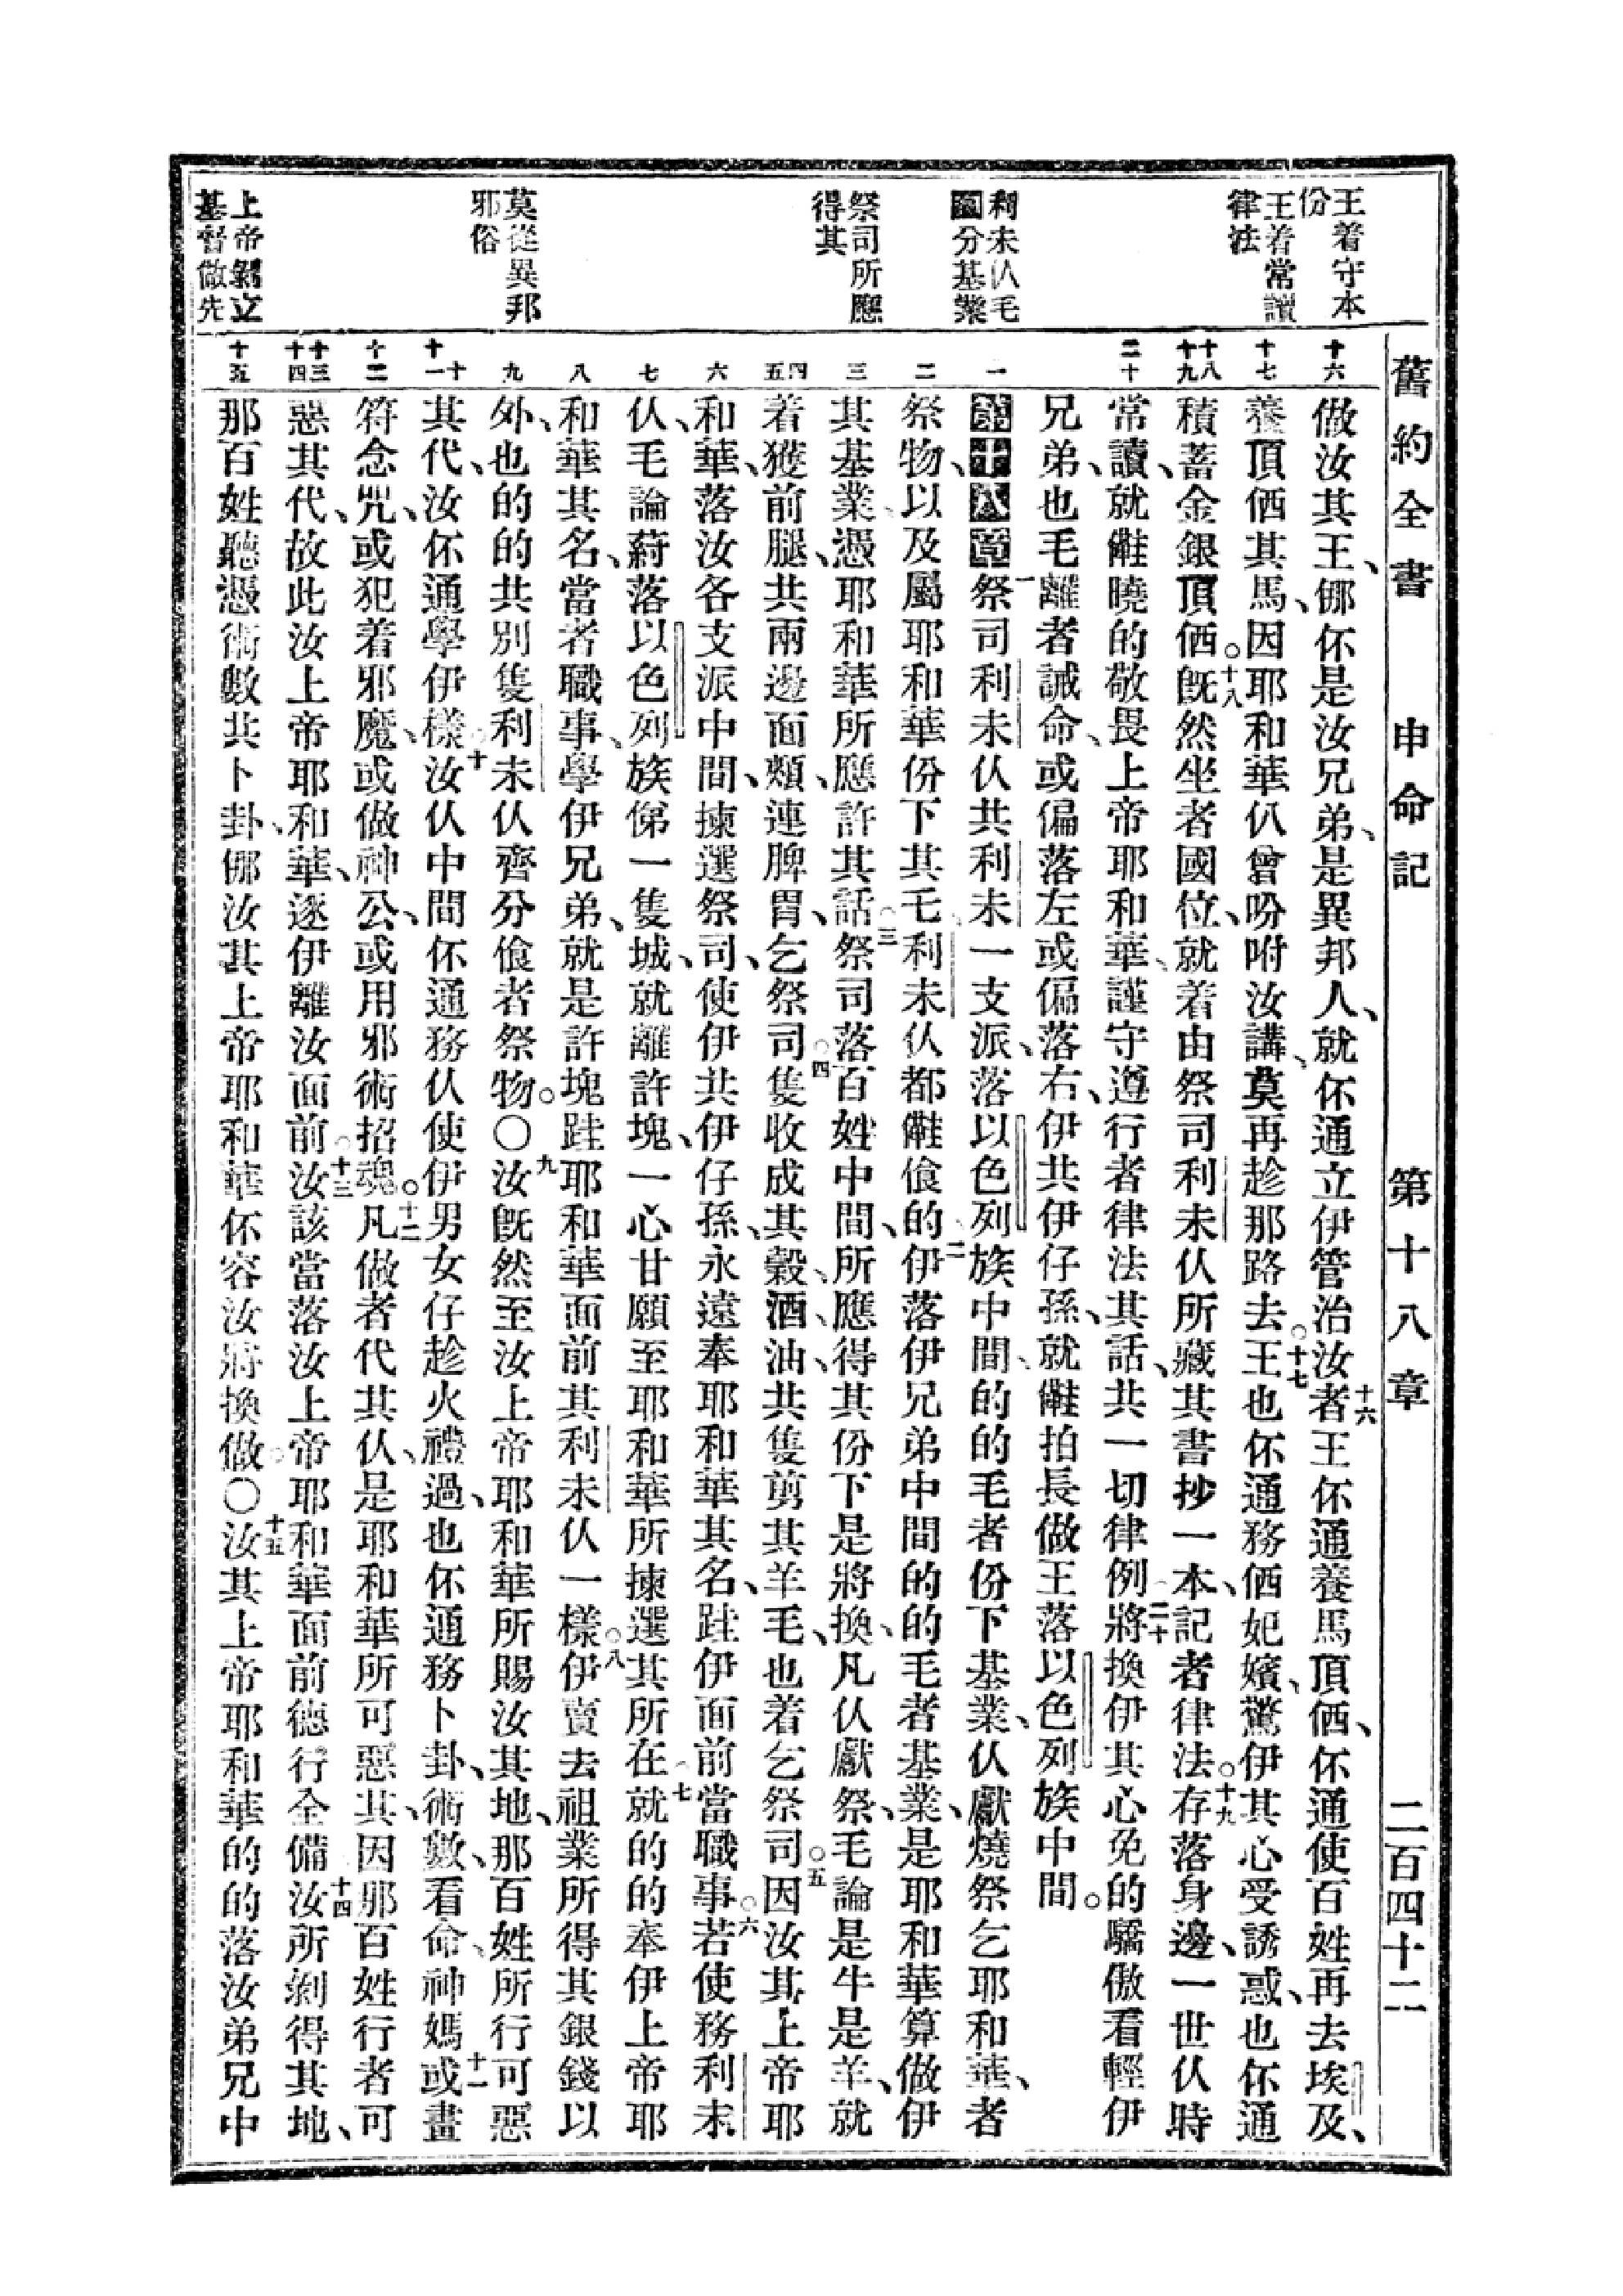 舊約全書 申命記 第十八章 二百四十二
王着守本
份
王着常讀
律法
利未仈毛
分基業
祭司所應
得其
莫從異邦
邪俗
上帝立
基督做先
十六
十七
十八
十九
二十
一
二
三
四
五
六
七
八
九
十
十一
十二
十三
十四
十五
做汝其王、㑚伓是汝兄弟、是異邦人、就伓通立伊管治汝者十六王伓通養馬頂価、伓通使百姓再去埃及、
養頂価其馬、因耶和華仈曾吩咐汝講、莫再趁那路去○十七王也伓通務価妃嬪、驚伊其心受誘惑、也伓通
積蓄金銀頂価○十八旣然坐者國位、就着由祭司利未仈所藏其書抄一本、記者律法○十九存落身邊、一世仈時
常讀、就曉的敬畏上帝耶和華、謹守遵行者律法其話、共一切律例○二十將換伊其心免的驕傲看輕伊
兄弟、也毛離者誡命、或偏落左或偏落右、伊共伊仔孫、就拍長做王落以色列族中間。
第十八章一祭司利未仈共利未一支派、落以色列族中間、的的毛者份下基業、仈獻燒祭乞耶和華、者
祭物、以及屬耶和華份下其毛利未仈都食的二伊落伊兄弟中間的的毛者基業、是耶和華算做伊
其基業、憑耶和華所應許其話○三祭司落百姓中間、所應得其份下是將換、凡仈獻祭、毛論是牛是羊、就
着獲前腿、共兩邊面頰、連脾胃、乞祭司○四隻收成其穀、酒、油、共隻剪其羊毛、也着乞祭司○五因汝其上帝耶
和華、落汝各支派中間、揀選祭司、使伊共伊仔孫、永遠奉耶和華其名、跬伊面前當職事○六若使務利未
仈、毛論落以色列族俤一隻城、就離許塊、一心甘願至耶和華所揀選其所在七就的的奉伊上帝耶
和華其名、當者職事、學伊兄弟、就是許塊跬耶和華面前其利未仈一樣○八伊賣去祖業所得其銀錢以
外、也的的共別隻利未仈齊分食者祭物。〇九汝旣然至汝上帝耶和華所賜汝其地、那百姓所行可惡
其代、汝伓通學伊樣○十汝仈中間伓通務仈使伊男女仔趁火禮過、也伓通務卜卦、術數、看命、神媽十一或畫
符念咒、或犯着邪魔、或做神公、或用邪術招魂○十二凡做者代其仈、是耶和華所可惡其、因那百姓行者可
惡其代、故此汝上帝耶和華、逐伊離汝面前○十三汝該當落汝上帝耶和華面前德行全備十四汝所剿得其地、
那百姓聽憑術數共卜卦、㑚汝其上帝耶和華伓容汝將換做〇十五汝其上帝耶和華的的落汝弟兄中